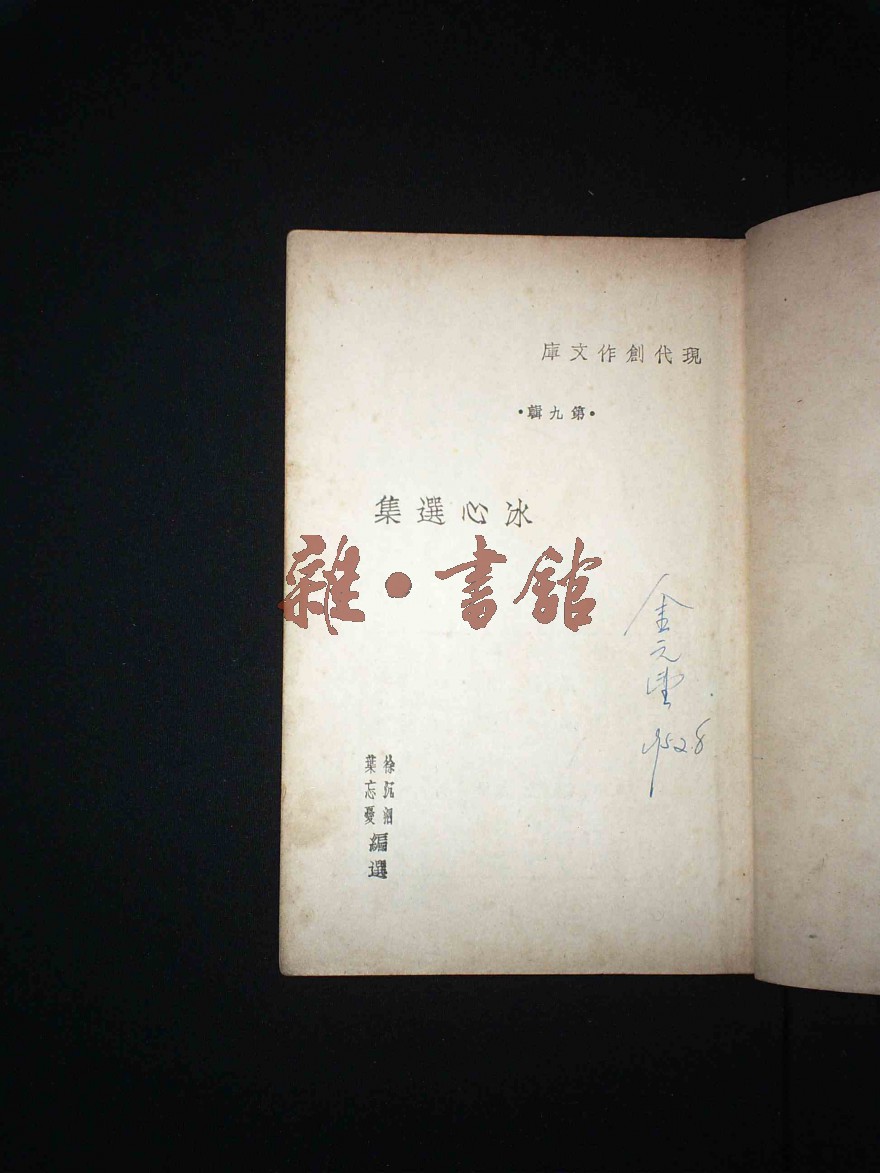 現代創作文庫
•第九輯•
冰心選集
雜•書館
金元
1952.8
徐沉泗
葉忘憂
編選